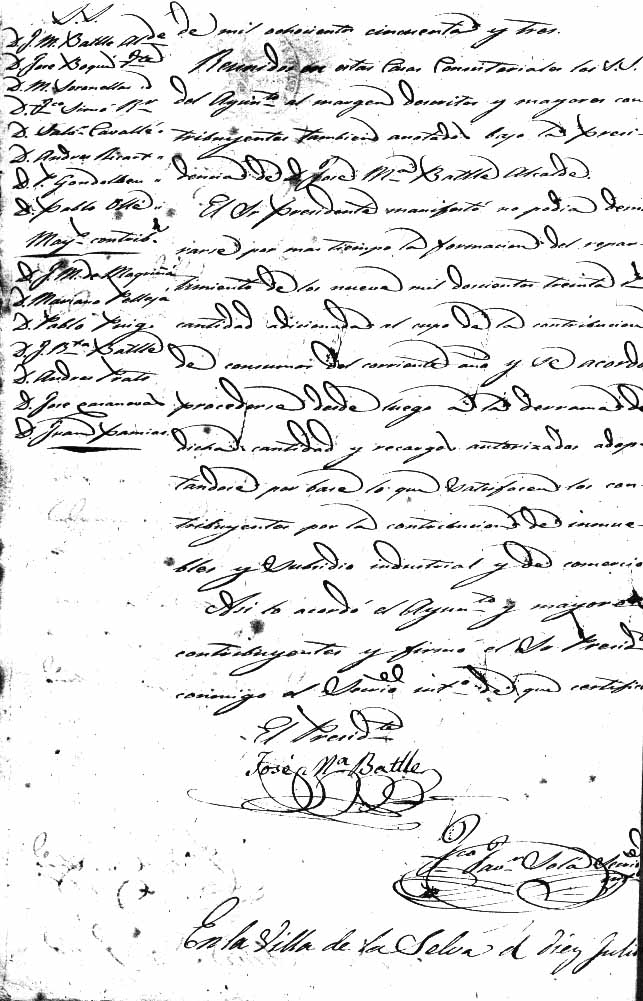 S.S.
D. J. M. Batlle Alde
D. José Boqué
D. M.
D. Fco Simó Rr
D. Cavallé
D. Andres Ricart
D. P. Gondolbeu
D. Pablo Ollé
Mays contribs
D. J. M. de Magriñá
D. Mariano Pelleja
D. Pablo Puig
D. J. Bta Batlle
D. Andres Prats
D. José Casanovas
D. Juan Pamias
de mil ochocientos cincuenta y tres.
Reunidos en estas Casas Consistoriales los S.S.
del Ayunto al margen descritos y mayores con
tribuyentes tambien anotados bajo la presi-
dencia de D. José Ma Batlle Alcalde.
El Sr Presidente manifestó no podia demo
rarse por mas tiempo la formacion del repar-
timiento de los nueve mil doscientos treinta
cantidad adicionada al cupo de la contribucion
de consumos del corriente año y se acordó
procederse desde luego a la derrama de
dicha cantidad y recargos autorizados adop-
tandose por base lo que satisfacen los con-
tribuyentes por la contribucion de inmue-
bles y subsidio industrial y de comercio
Asi lo acordó el Ayunto y mayores
contribuyentes y firmó el Sr Presidte
conmigo el Secrio into de que certifico
El Presidte
José Ma Batlle
Fco Javr Solá Secrio
En la Villa de la Selva á diez Julio